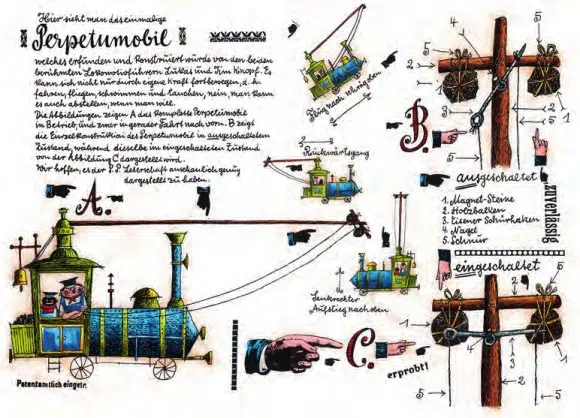 Hier sieht man das einmalige
Perpetumobil
welches erfunden und konstruiert wurde von den beiden
berühmten Lokomotivführern Lukas und Jim Knopf. Es
kann sich nicht nur durch eigene Kraft fortbewegen, d. h.
fahren, fliegen, schwimmen und tauchen, nein, man kann
es auch abstellen, wenn man will.
Die Abbildungen zeigen A das komplette Perpetumobil
im Betrieb, und zwar in gerader Fahrt nach vorn. B zeigt
die Einzelkonstruktion des Perpetumobil in ausgeschaltetem
Zustand, während dieselbe im eingeschalteten Zustand
von der Abbildung C dargestellt wird.
Wir hoffen, es der P.P. Leserschaft anschaulich genug
dargestellt zu haben.
A.
Patentamtlich eingetr.
Flug nach schräg oben
Rückwärtsgang
Senkrechter
Aufstieg nach oben
B.
5
4
5
2
3
2
1
1
5
5
ausgeschaltet
zuverlässig
1. Magnet-Steine
2. Holzbalken
3. Eiserner Schürhaken
4. Nagel
5. Schnur
eingeschaltet
C.
erprobt!
5
2
5
1
4
1
3
5
2
5